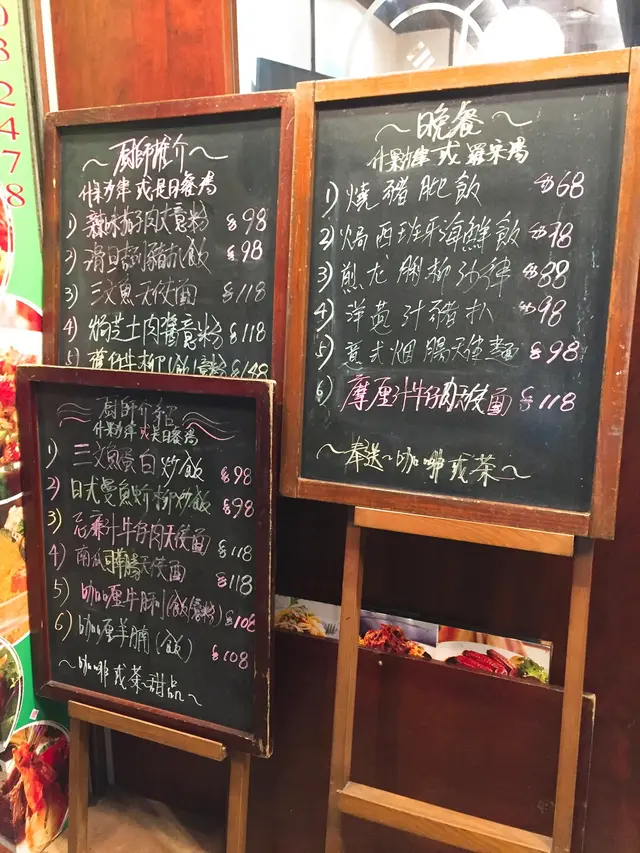 2
4
7
8
～廚師推介～
什果沙律 或 是日餐湯
1) 意粉 $98
2) 豬扒飯 $98
3) 三文魚天使面 $118
4) 焗芝士肉醬意粉 $118
5) 牛柳 (飯/意粉) $148
～晚餐～
什果沙律 或 羅宋湯
1) 燒豬肶飯 $68
2) 焗西班牙海鮮飯
3) 煎龙脷柳沙律 $88
4) 洋葱汁豬扒 $98
5) 意式烟腸天使麵 $98
6) 摩厘汁牛仔肉天使面 $118
～奉送～咖啡或茶～
廚師介紹
什果沙律 或是日餐湯
1) 三文魚蛋白炒飯 $98
2) 日式曼魚炒飯 $98
3) 汁牛仔肉天使面 $118
4) 南瓜天使面 $118
5) 咖喱牛脷(飯/意粉) $108
6) 咖喱羊腩(飯) $108
～咖啡或茶 甜品～